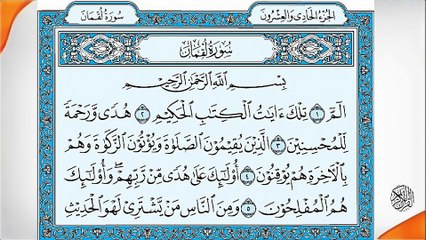 الجزء الحادي والعشرون
سورة لقمان
سورة لقمان
بسم الله الرحمن الرحيم
الٓمٓ ١ تِلْكَ ءَايَٰتُ ٱلْكِتَٰبِ ٱلْحَكِيمِ ٢ هُدًى وَرَحْمَةً
لِّلْمُحْسِنِينَ ٣ ٱلَّذِينَ يُقِيمُونَ ٱلصَّلَوٰةَ وَيُؤْتُونَ ٱلزَّكَوٰةَ وَهُم
بِٱلْءَاخِرَةِ هُمْ يُوقِنُونَ ٤ أُو۟لَٰٓئِكَ عَلَىٰ هُدًى مِّن رَّبِّهِمْ ۖ وَأُو۟لَٰٓئِكَ
هُمُ ٱلْمُفْلِحُونَ ٥ وَمِنَ ٱلنَّاسِ مَن يَشْتَرِى لَهْوَ ٱلْحَدِيثِ